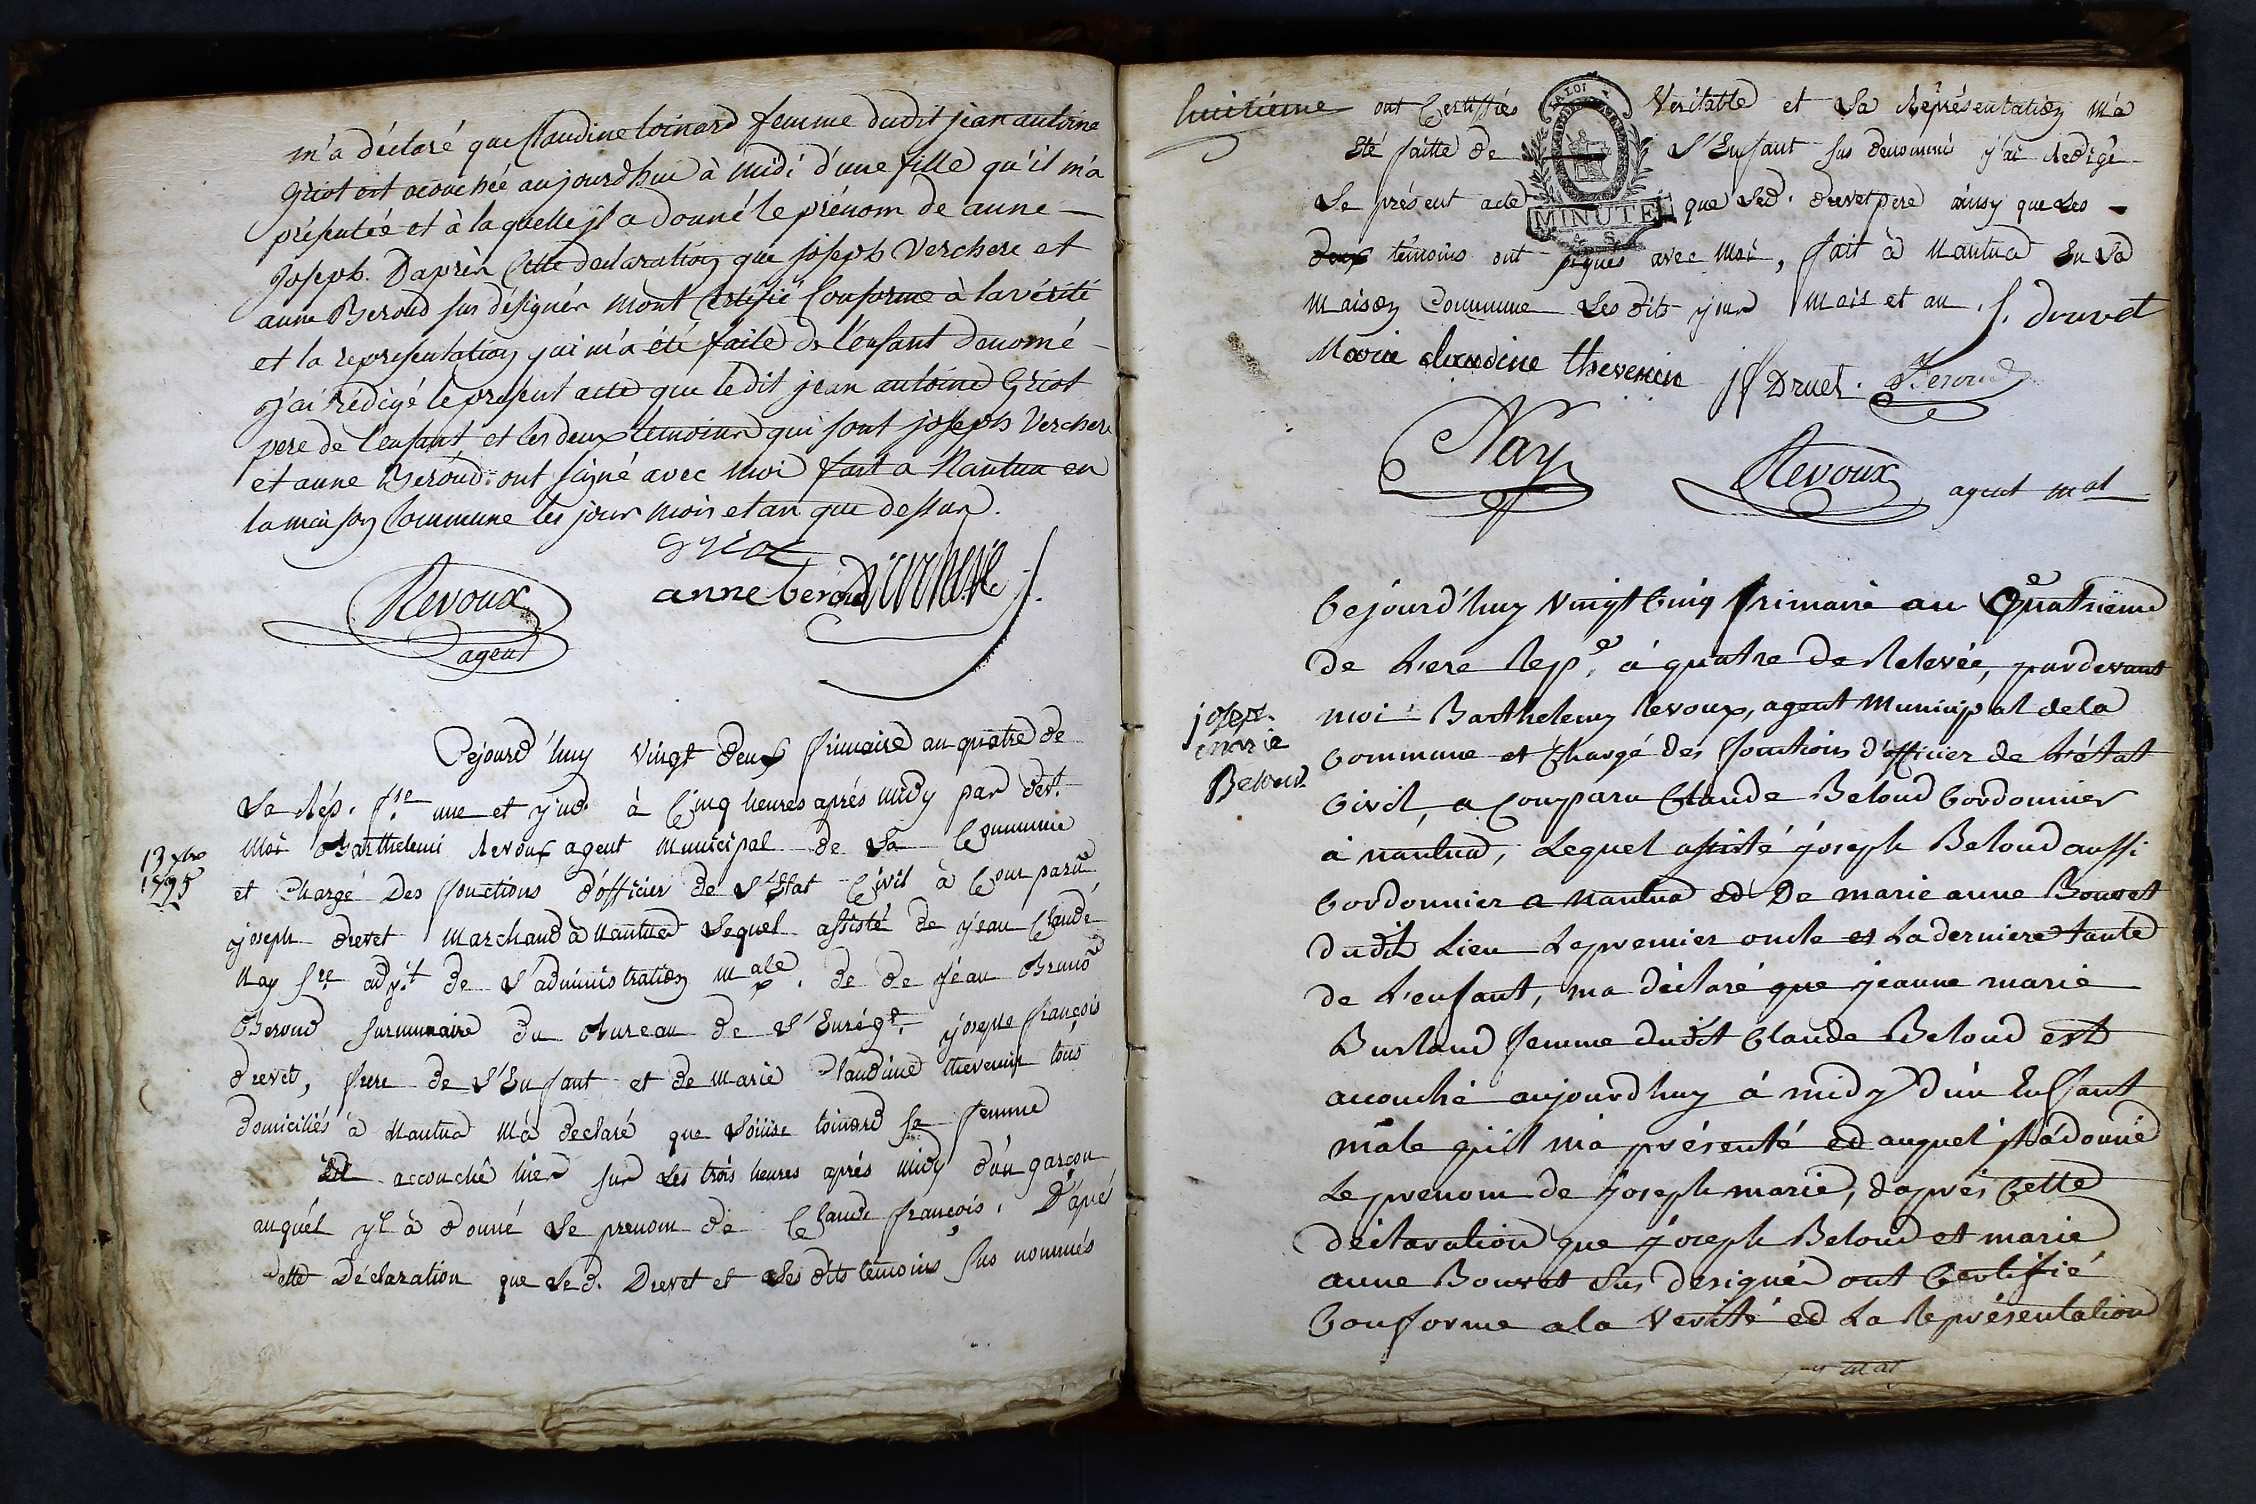 m'a déclaré que Claudine Coinard femme dudit jean antoine
Griot est acouchée aujourdhui à midi d'une fille qu'il m'a
présentée et à laquelle jl a donné le prénom de anne
Joseph. Daprès Cette déclaration que joseph Verchere et
anne Beroud sus désignés mont certifié Conforme à la vérité
et la représentation qui m'a été faite de l'enfant denomé
j'ai rédigé le présent acte que ledit jean antoine Griot
pere de l'enfant et les deux temoins qui sont joseph Verchere
et anne Beroud ont signé avec moi fait a Nantua en
la maison Commune les jour mois et an que dessus.
griot
anne beroud Verchere
Revoux
agent
Cejourd'huy vingt deux frimaire an quatre de
La Rép. fse une et jnd. à Cinq heures aprés midy par devt.
Moi Barthelemi Revoux agent Municipal de La Commune
13 xbre
1795
et Chargé Des fonctions d'officier de L'Etat Civil à Comparu
joseph drevet Marchand à Nantua Lequel assisté de jean Claude
Nay sre adjt de L'administration male. de de jean Bruno
Beroud surnumaire du Bureau de L'Enrégt. joseph françois
drevet, frere de L'Enfant et de Marie Claudine thevenin tous
domiciliés à Nantua M'à declaré que Loüise Coinard sa femme
Est accouchê hier sur Les trois heures aprés midy d'ún garçon
auquél yl à donné Le prenom de Claude françois. D'apré
Cette Déclaration que Led. Drevet et Les dits temoins sus nommés
huitieme
ont Certiffiés Veritable et La Réprésentation m'a
Eté faitte de L'Enfant sus denommé j'ai Redigé
LA LOI
MINUTE
Le présent acte que Led. drevet pere ainsy que Les
deux témoins ont signés avec Moi, fait à Nantua En La
Maison Commune Les dits jour Mois et an. J. drevet
Marie claudine thevenin jf Druet. Beroud
Nay
Revoux agent mal
Cejourd'huy vingt Cinq frimaire an Quatrieme
de L'ere Repe. à quatre de Relevée, pardevant
moi Barthelemy Revoux, agent Municipal de la
joseph
marie
Beloud
Commune et Chargé des fonctions d'officier de L'état
Civil, a Comparu Claude Beloud Cordonnier
à nantua, Lequel assisté joseph Beloud aussi
Cordonnier a nantua et De marie anne Bouvet
dudit Lieu Le premier oncle et La derniere tante
de L'enfant, ma déclaré que jeanne marie
Burland femme dudit Claude Beloud est
accouché aujourdhuy à midy d'ún Enfant
mâle qu'il m'a présenté et auquel jl a donné
Le prenom de joseph marie, daprés Cette
déclaration que joseph Beloud et marie
anne Bouvet sus designés ont Certifié
Conforme a la Verité et La Représentation